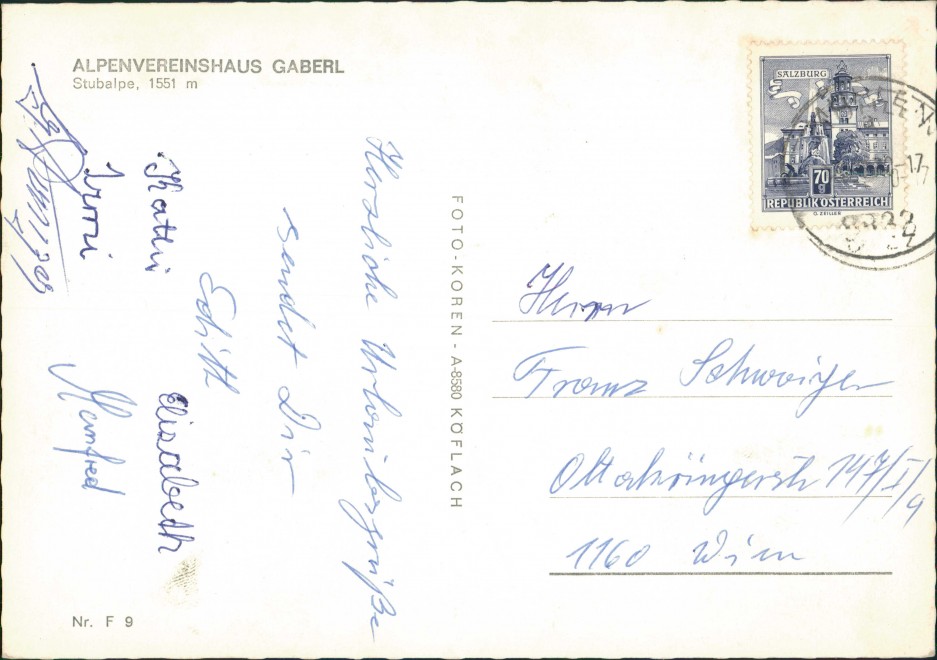 ALPENVEREINSHAUS GABERL
Stubalpe, 1551 m
Herzliche Urlaubsgrüße
sendet Dir
Edith
Kathi
Elisabeth
Irmi
Manfred
FOTO-KOREN - A-8580 KÖFLACH
SALZBURG
70
g
REPUBLIK ÖSTERREICH
G. ZEILLER
Herrn
Franz Schwaiger
Ottakringerstr 147/I/9
1160 Wien
Nr. F 9